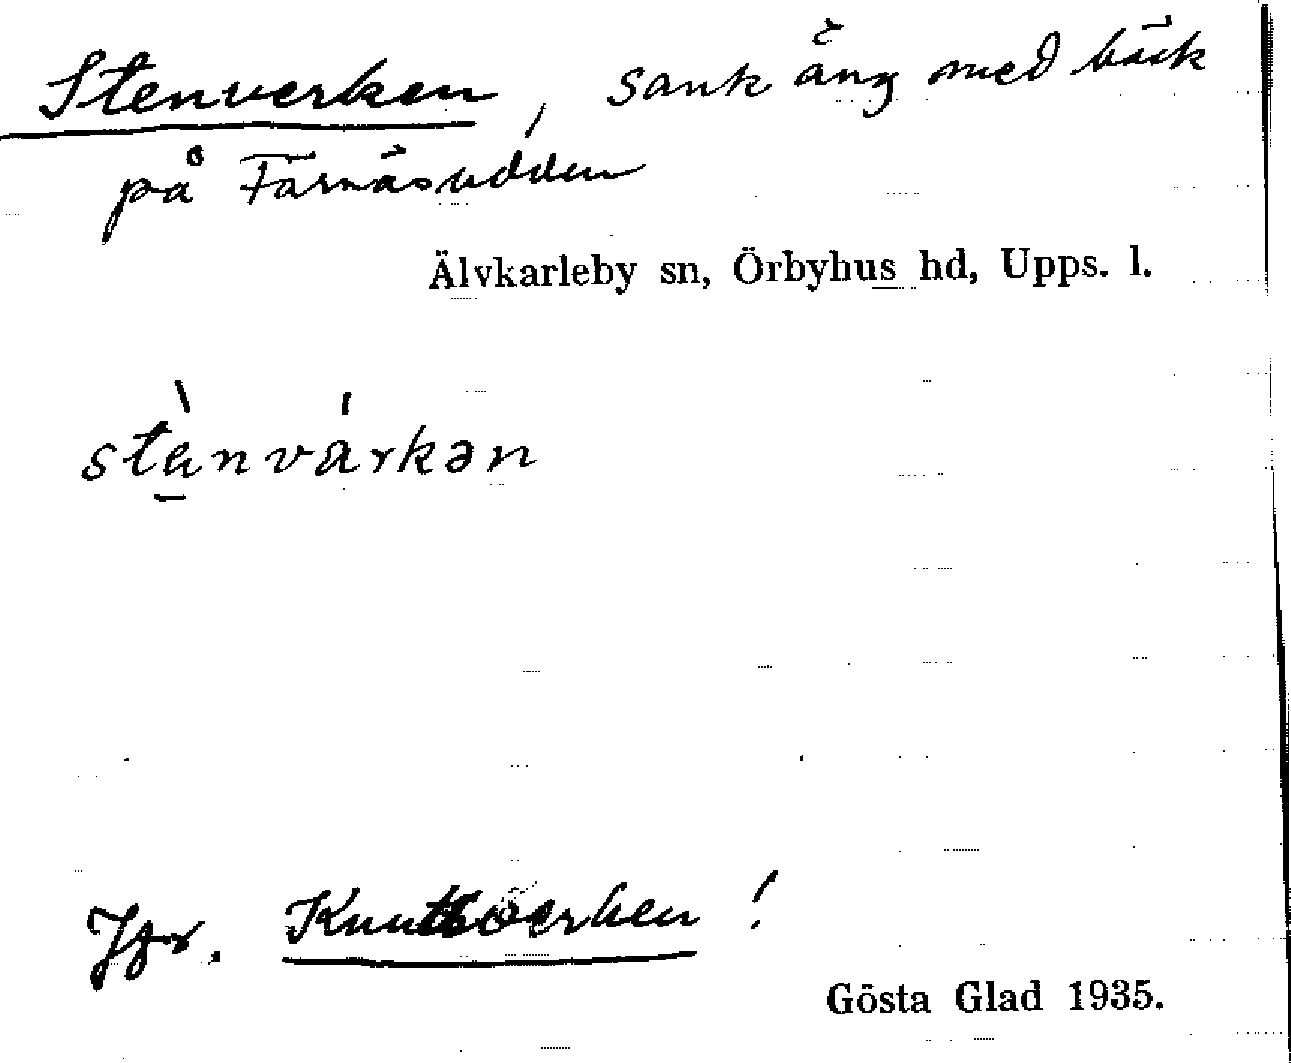 Stenverken, sank äng med bäck
på Färnäsudden
Älvkarleby sn, Örbyhus hd, Upps. l.
stànvárkən
Jfr. Knutsverken!
Gösta Glad 1935.